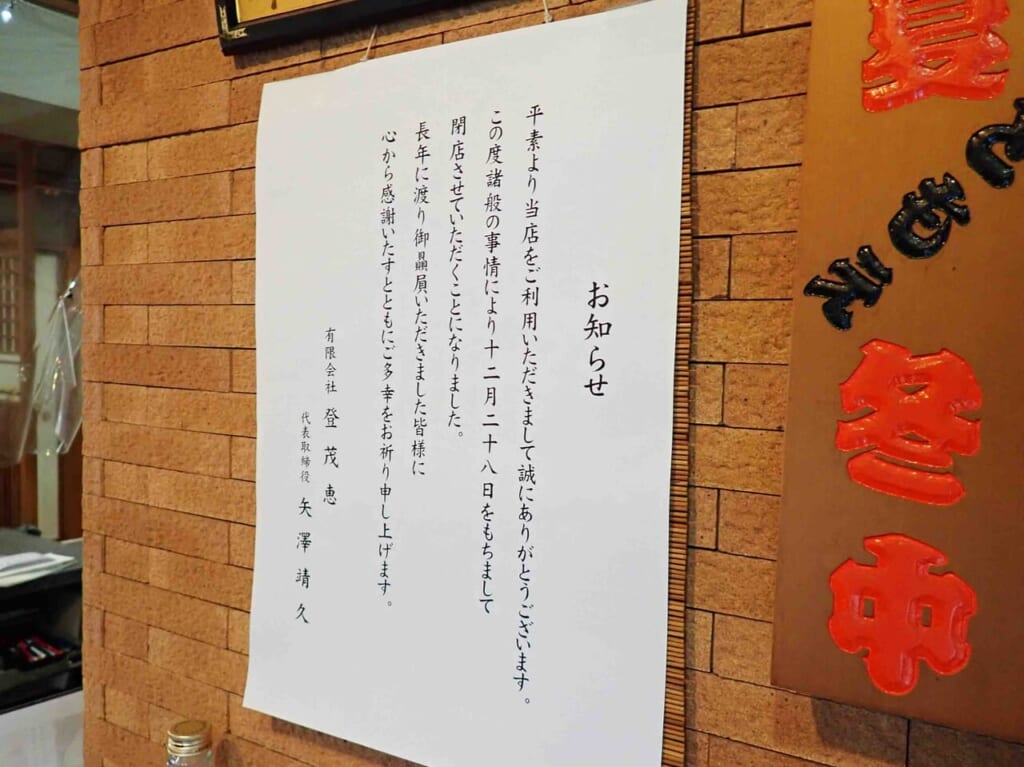 お知らせ
平素より当店をご利用いただきまして誠にありがとうございます。
この度諸般の事情により十二月二十八日をもちまして
閉店させていただくことになりました。
長年に渡り御贔屓いただきました皆様に
心から感謝いたすとともにご多幸をお祈り申し上げます。
有限会社 登茂恵
代表取締役 矢澤靖久
ともゑ